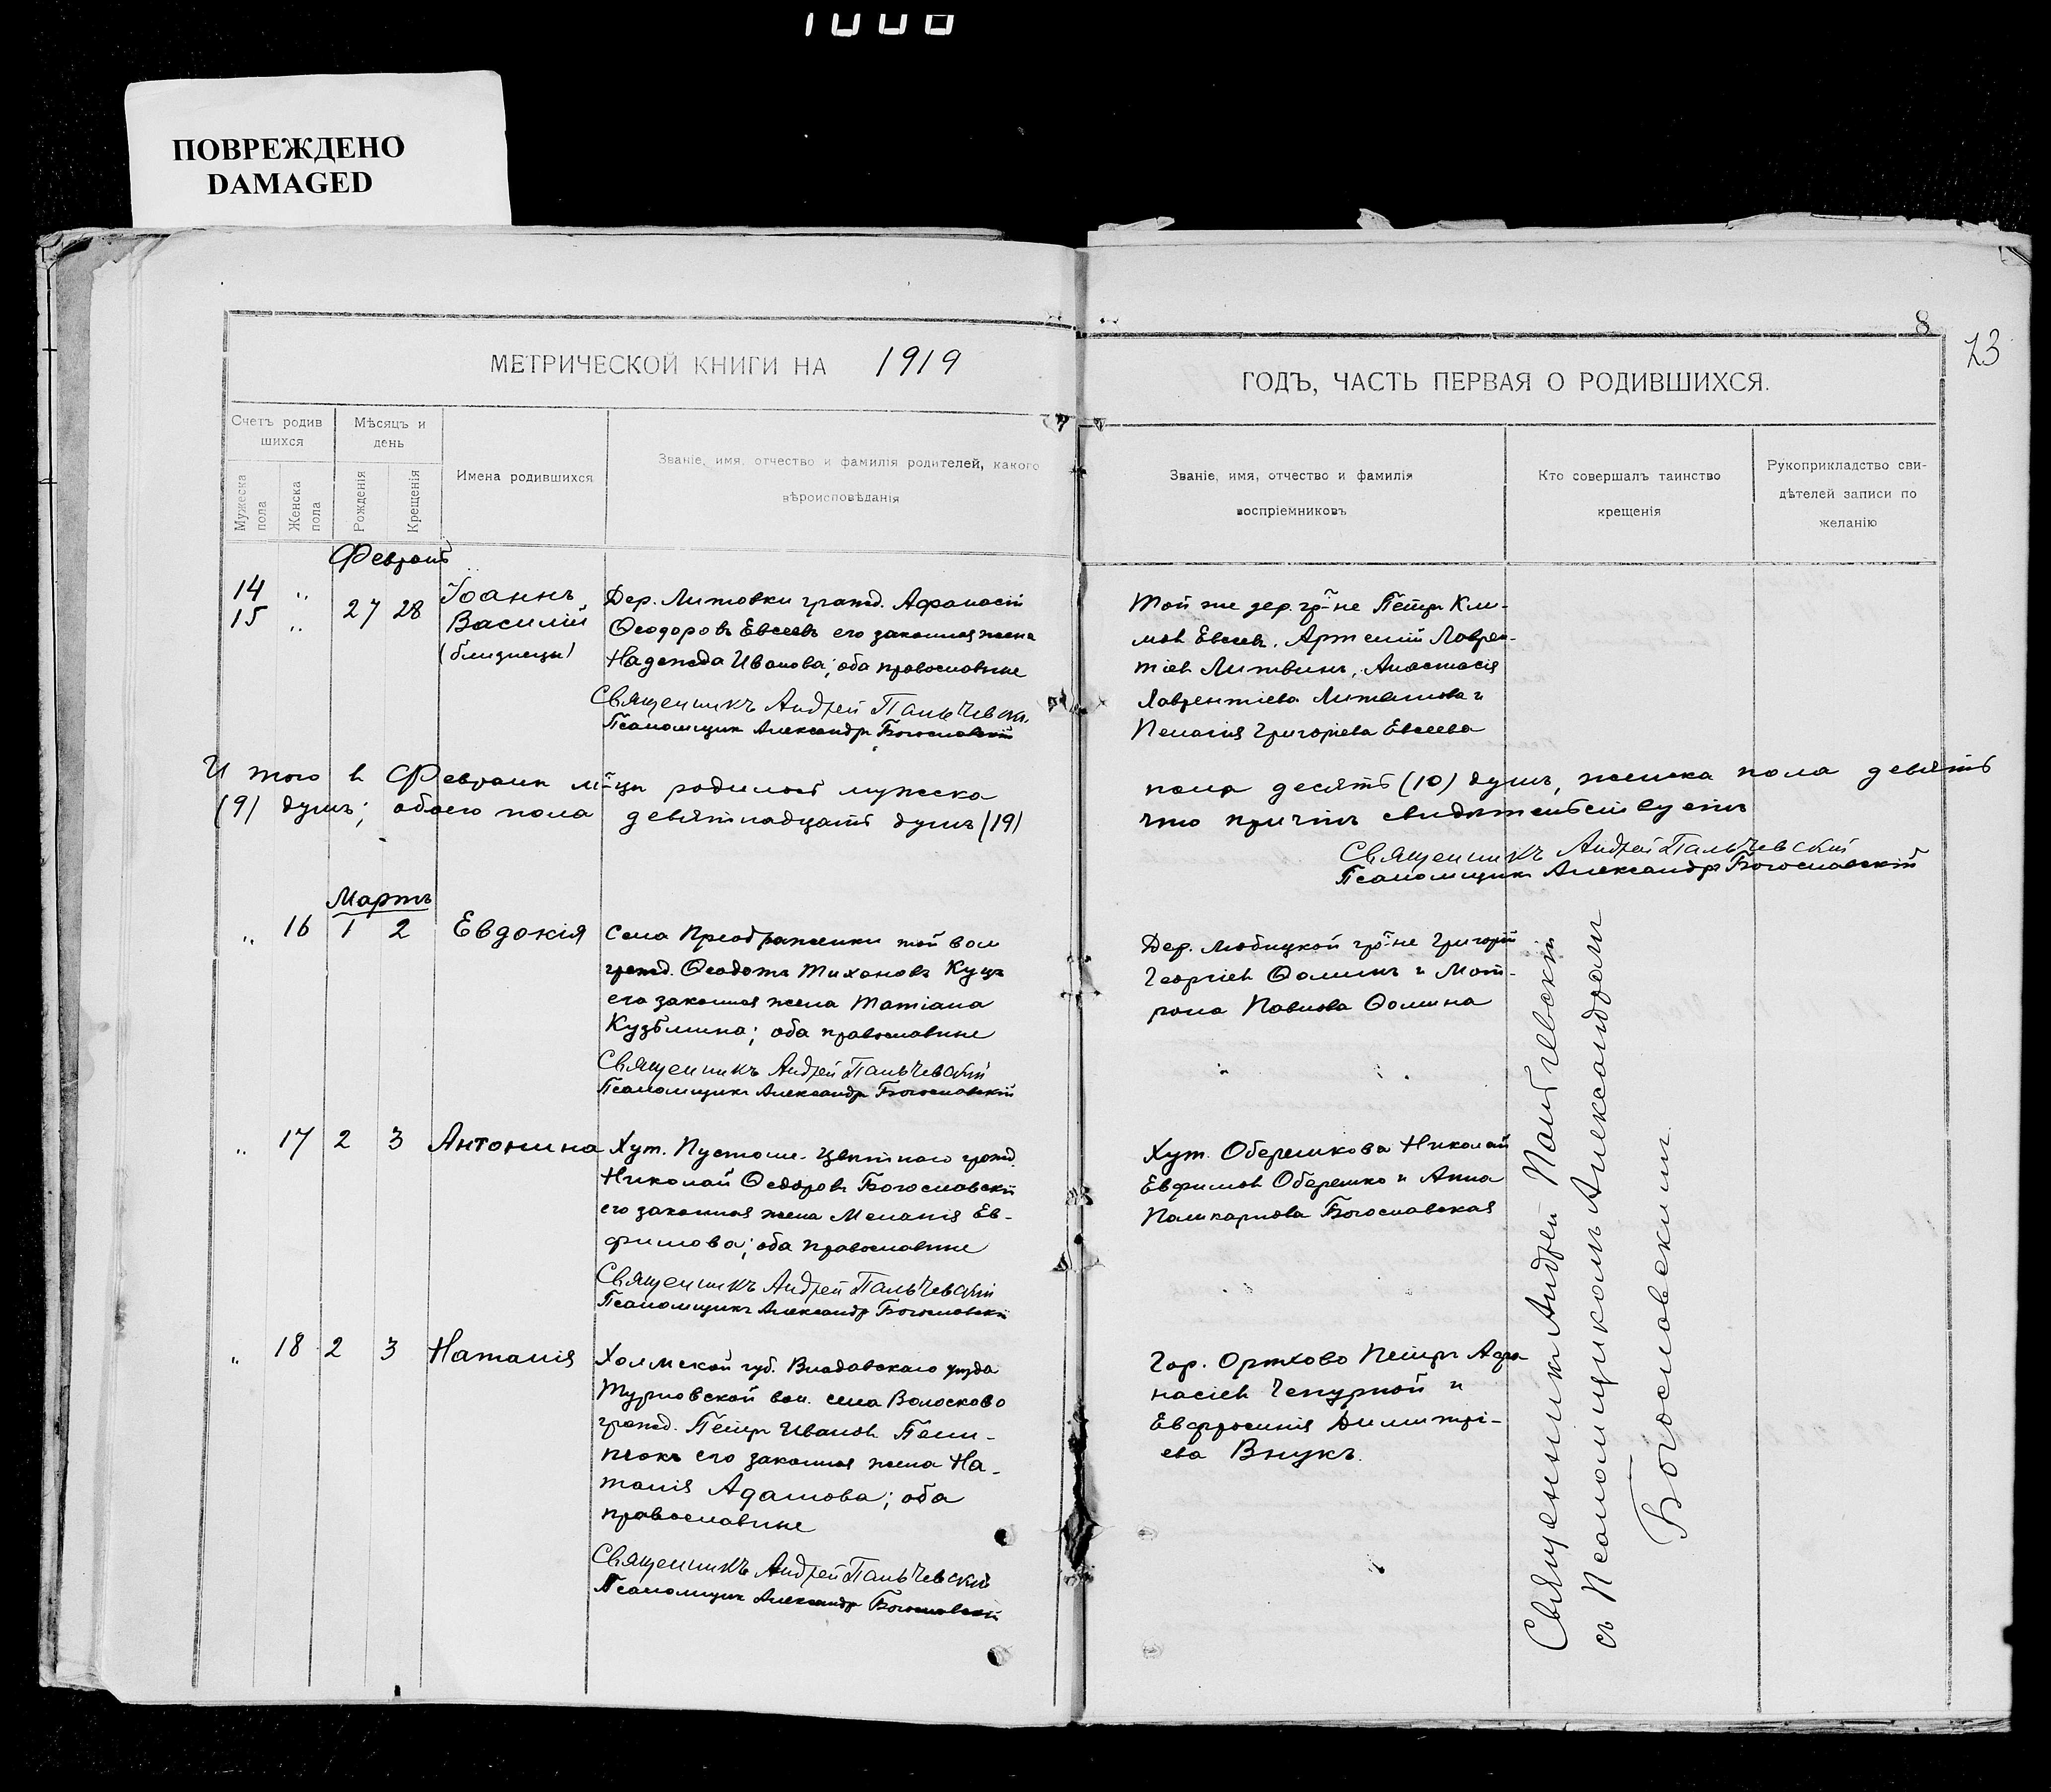 1000
ПОВРЕЖДЕНО
DAMAGED
8
23
МЕТРИЧЕСКОЙ КНИГИ НА 1919
ГОДЪ, ЧАСТЬ ПЕРВАЯ О РОДИВШИХСЯ.
Счетъ родив
шихся
Мужеска
пола
Женска
пола
Мѣсяцъ и
день
Рожденія
Крещенія
Имена родившихся
Званіе, имя, отчество и фамилія родителей, какого
вѣроисповѣданія
Званіе, имя, отчество и фамилія
воспріемниковъ
Кто совершалъ таинство
крещенія
Рукоприкладство сви-
дѣтелей записи по
желанію
Февраль
14 „
15 „
27 28
Іоаннъ
Василій
(близнецы)
Дер. Литовки гражд. Афанасій
Ѳеодоровъ Евсеевъ его законная жена
Надежда Иванова; оба православные
Священникъ Андрей Пальчевскій
Псаломщикъ Александръ Богословскій
Той же дер. гр-не Петръ Кли-
мовъ Евсеевъ, Артемій Лаврен-
тіевъ Литвинъ, Анастасія
Лаврентіева Литвинова и
Пелагія Григоріева Евсеева
И того въ Февралѣ м-цѣ родилось мужска
пола десять (10) душъ, женска пола девять
(9) душъ; обоего пола девятнадцать душъ (19)
что причтъ свидѣтельствуетъ
Священникъ Андрей Пальчевскій
Псаломщикъ Александръ Богословскій
Мартъ
„ 16 1 2 Евдокія
Села Преображенки той вол
гражд. Ѳеодотъ Тихоновъ Куцъ
его законная жена Татіана
Кузьмина; оба православные
Священникъ Андрей Пальчевскій
Псаломщикъ Александръ Богословскій
Дер. Любицкой гр-не Григорій
Георгіевъ Ѳоминъ и Мат-
рона Павлова Ѳомина
„ 17 2 3 Антонина
Хут. Пустоше-Цвѣтного гражд.
Николай Ѳедоровъ Богославскій
его законная жена Меланія Ев-
фимова; оба православные
Священникъ Андрей Пальчевскій
Псаломщикъ Александръ Богословскій
Хут. Оберешкова Николай
Евфимовъ Оберешко и Анна
Поликарпова Богославская
„ 18 2 3 Наталія
Холмской губ. Влодавскаго уѣзда
Турновской вол. села Волосково
гражд. Петръ Ивановъ
его законная жена На-
талія Адамова; оба
православные
Священникъ Андрей Пальчевскій
Псаломщикъ Александръ Богословскій
Гор. Орѣхово Петръ Афа-
насіевъ Чепурной и
Евфросинія Димитрі-
ева Внукъ.
Священникъ Андрей Пальчевскій
съ Псаломщикомъ Александромъ
Богословскимъ.